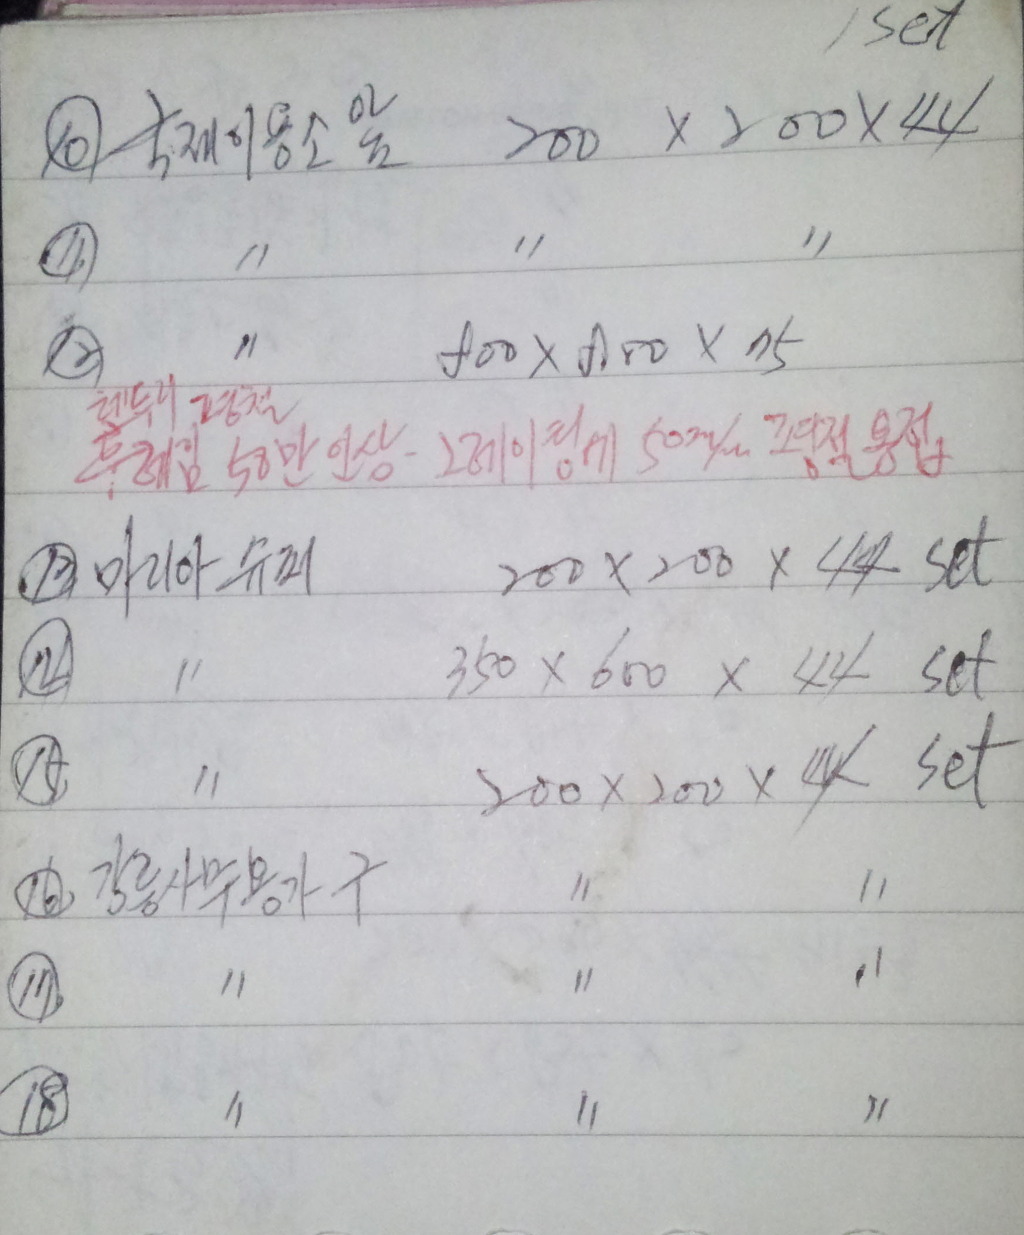 1 set
⑩ 국제이용소 앞 200 X 200 X 44
⑪ " " "
⑫ " 400 X 800 X 75
후레임 50만 인상 - 그레이팅에 50m/m 고정철 용접
⑬ 마리아 슈퍼 200 X 200 X 44 set
⑭ " 350 X 600 X 44 set
⑮ " 200 X 200 X 44 set
⑯ 강릉사무용가구 " "
⑰ " " "
⑱ " " "